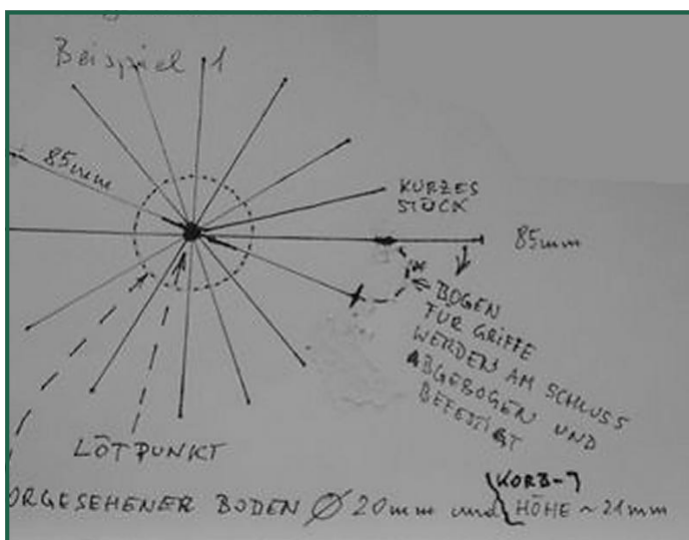 Beispiel 1
85mm
KURZES
STÜCK
85mm
BOGEN
FÜR GRIFFE
WERDEN AM SCHLUSS
ABGEBOGEN UND
BEFESTIGT
LÖTPUNKT
KORB-
ORGESEHENER BODEN Ø 20mm und HÖHE ~21mm